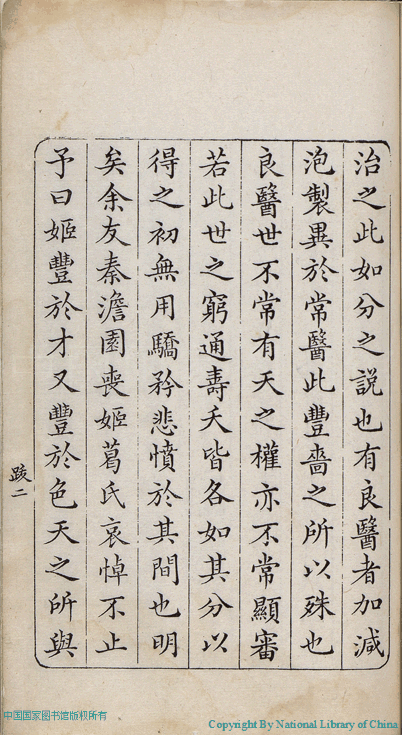 治之此如分之説也有良醫者加減
泡製異於常醫此豐嗇之所以殊也
良醫世不常有天之權亦不常顯審
若此世之窮通壽夭皆各如其分以
得之初無用驕矜悲憤於其間也明
矣余友秦澹園喪姬葛氏哀悼不止
予曰姬豐於才又豐於色天之所與
跋二
中国国家图书馆版权所有
Copyright By National Library of China